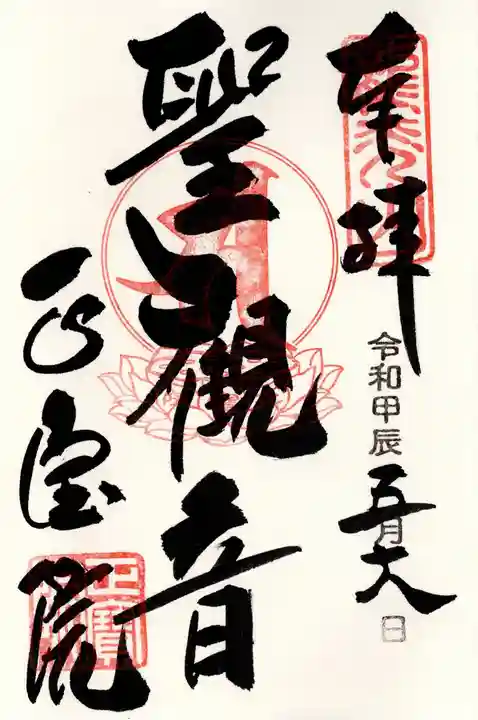 奉拝
令和甲辰 五月六日
聖観音
正宝院